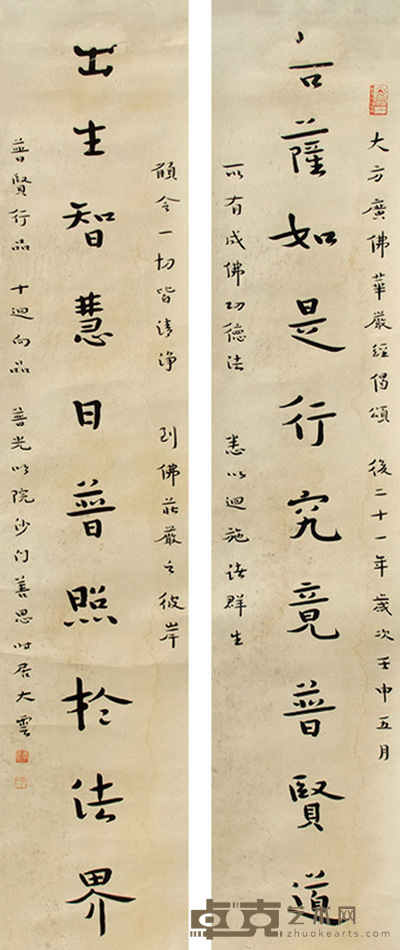 大方廣佛華嚴經偈頌 後二十一年歲次壬申五月
菩薩如是行究竟普賢道
所有成佛功德法 悉以迴施諸群生
願令一切皆清淨 到佛莊嚴之彼岸
出生智慧日普照於法界
普賢行品 十迴向品 普光明院沙门善思时居大雲
卓克艺术网
zhuokearts.com